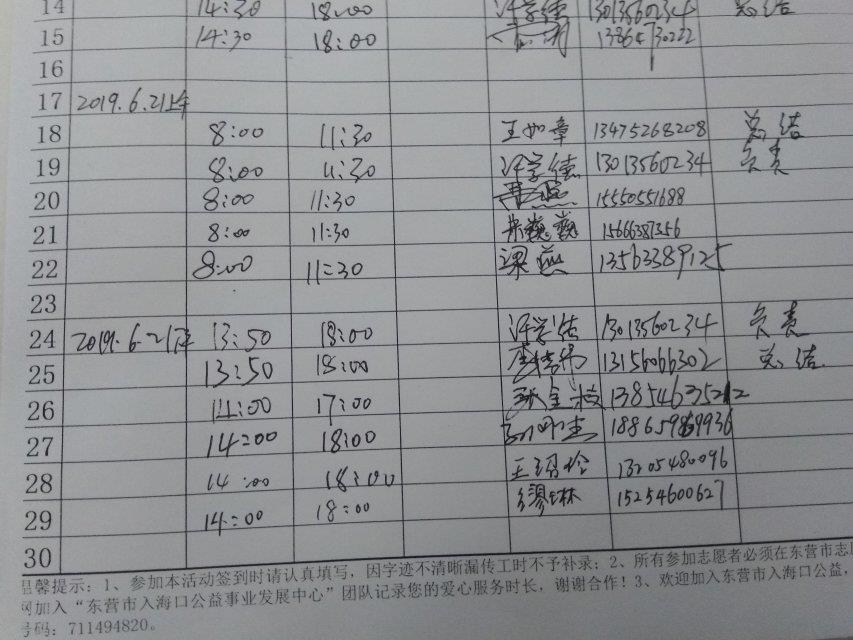 14 14:30 18:00 许学德 13013560234 总结
15 14:30 18:00
16
17 2019.6.21上午
18 8:00 11:30 王如章 13475268208 总结
19 8:00 11:30 许学德 13013560234 负责
20 8:00 11:30 15550551688
21 8:00 11:30 巍巍 15666387356
22 8:00 11:30 梁燕 13563389125
23
24 2019.6.21下 13:50 18:00 许学德 13013560234 负责
25 13:50 18:00 13156066302 总结
26 14:00 17:00 13854635212
27 14:00 18:00
28 14:00 18:00 王 13205480096
29 14:00 18:00 缪琳 15254600627
30
温馨提示:1、参加本活动签到时请认真填写,因字迹不清晰漏传工时不予补录;2、所有参加志愿者必须在东营市志
网加入“东营市入海口公益事业发展中心”团队记录您的爱心服务时长,谢谢合作!3、欢迎加入东营市入海口公益,
号码:711494820。